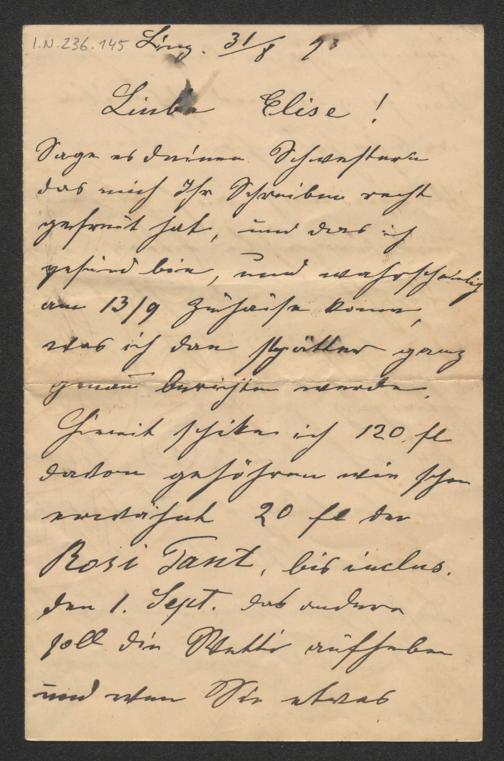 I.N. 236.145 Linz. 31/8 93
Liebe Elise!
Sage es deinen Schwestern
das mich Ihr Schreiben recht
gefreut hat, und das ich
gesund bin, und wahrscheinlig
am 13/9 zuhause kome,
was ich dan spätter ganz
genau berichten werde.
Hiemit schike ich 120 fl
davon gehöhren wie schon
erwähnt 20 fl der
Rosi Tant, bis inclus.
den 1. Sept. das andere
soll die Wetti aufheben
und wen Sie etwas